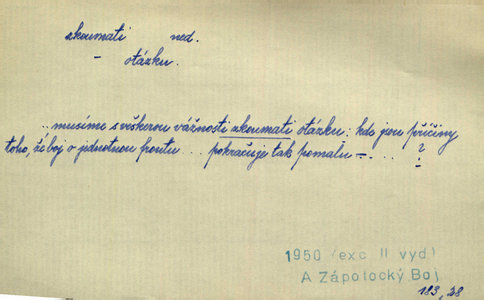 zkoumati ned.
– otázku.
.. musíme s veškerou vážností zkoumati otázku: kde jsou příčiny
toho, že boj o jednotnou frontu .. pokračuje tak pomalu – . . . ?
1950 (exc II vyd)
A Zápotocký Boj
183, 28